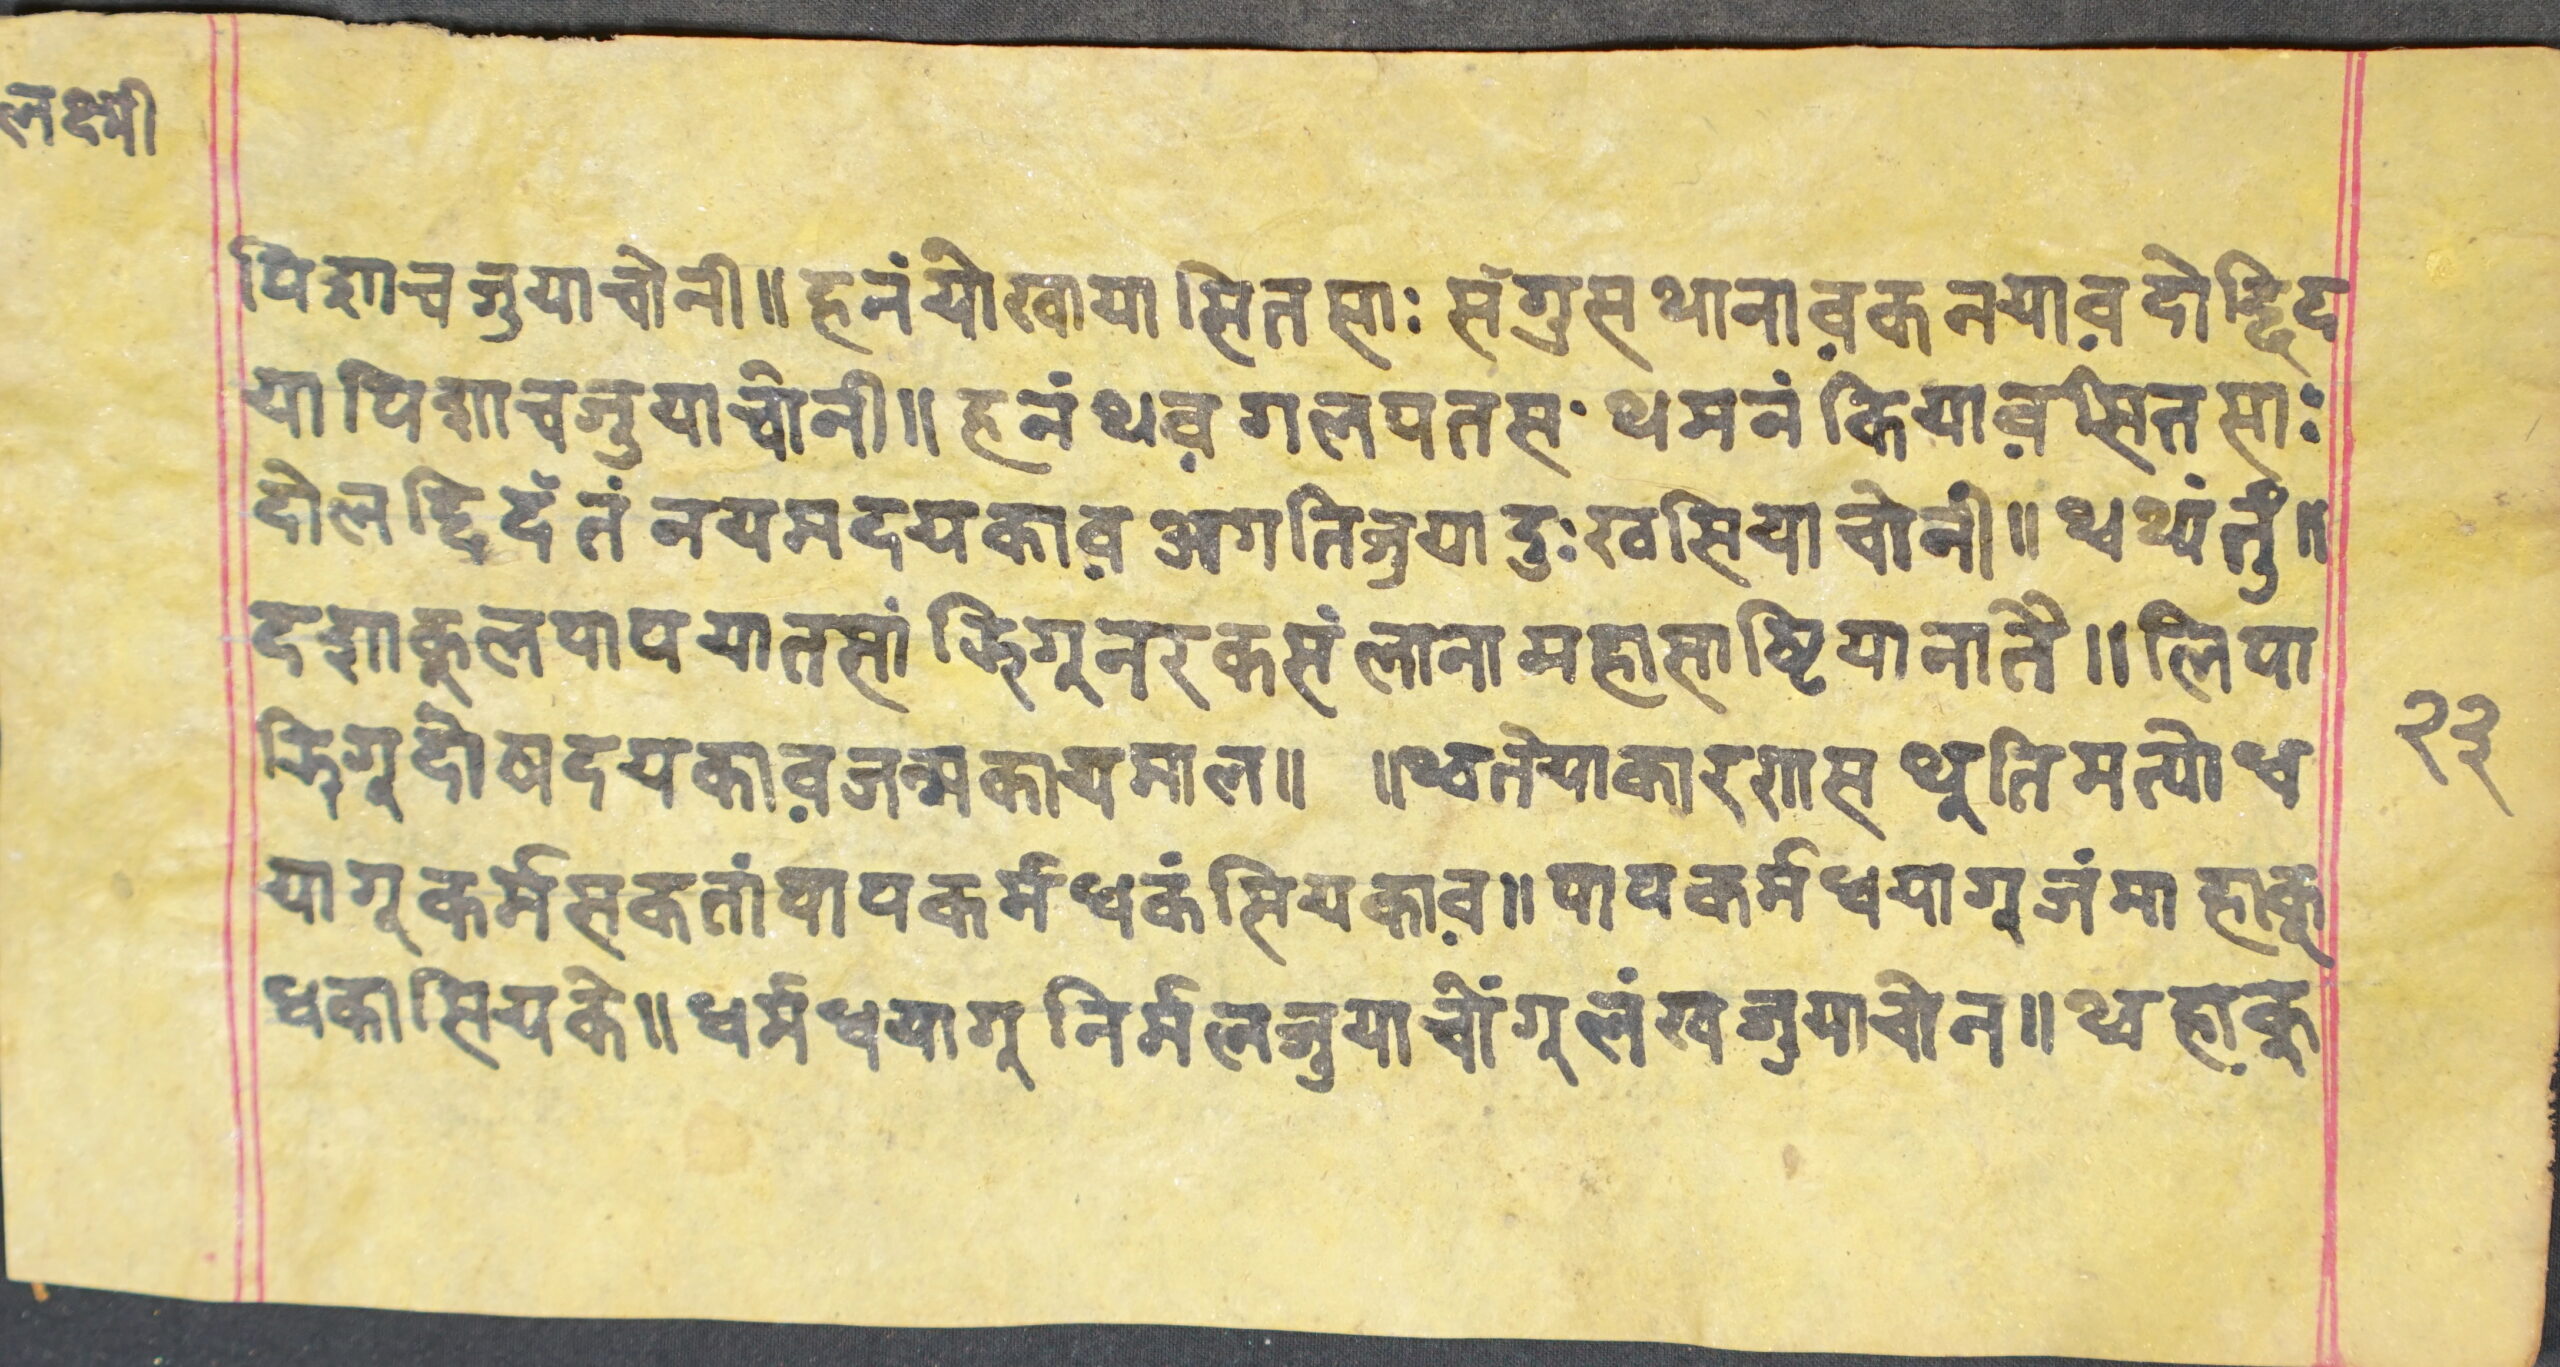 लक्ष्मी
पिशाचजुयाचोनी॥ हनं योखाया सितसाः सँगुस थानाव़कनयाव़ दोछिद
या पिशाचजुयाचोनी॥ हनं थव़ गलपतस॰ थमनं कियाव़ सितसाः
दोलछि दँतं नयमदयकाव़ अगतिजुया दुःखसियाचोनी॥ थ्व थ्यंतुँ॥
दशाकूलपापयातसां झिगूनरकसं लाना महासाष्टि यानातै॥ लिपा
झिगूदोषदयकाव़ जन्मकायमाल॥ ॥थ्वतेयाकारणस थुति मत्योध
यागू कर्मसकतां पापकर्म धकं सियकाव़॥ पापकर्मधयागू जंमा हाकू
धका सियके॥ धर्मधयागू निर्मलजुयाचोंगू लंखजुयाचोन॥ थ्व हाकु
२३